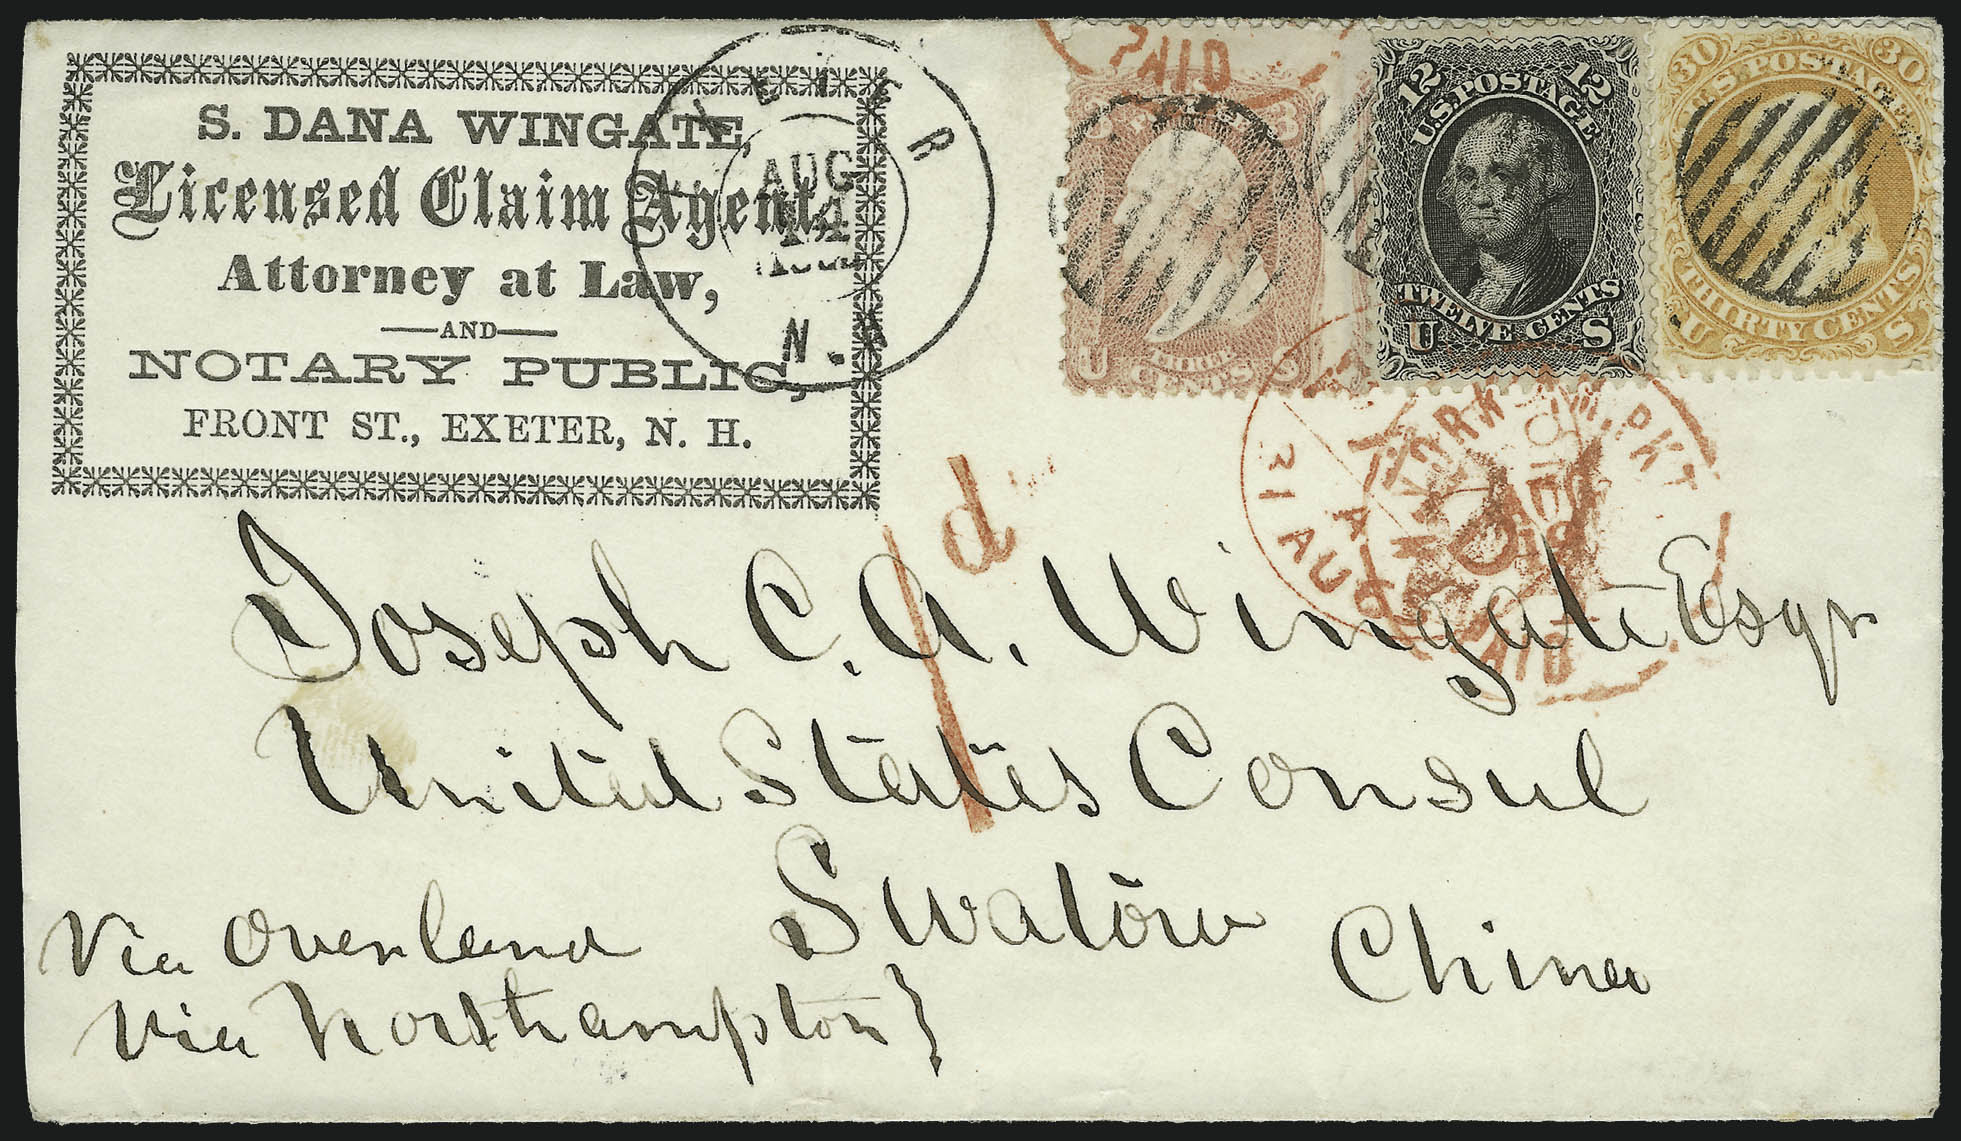 S. DANA WINGATE,
Licensed Claim Agent,
Attorney at Law,
AND
NOTARY PUBLIC,
FRONT ST., EXETER, N. H.
EXETER
AUG
14
N.H
PAID
3 3
U THREE S
CENTS
12 12
U.S. POSTAGE
TWELVE CENTS
U S
30 30
U.S. POSTAGE
THIRTY CENTS
U S
YORK AM. PKT
PAID
PAID
1d
Joseph C. A. Wingate Esqr
United States Consul
Swatow
China
Via Overland
Via Northampton }